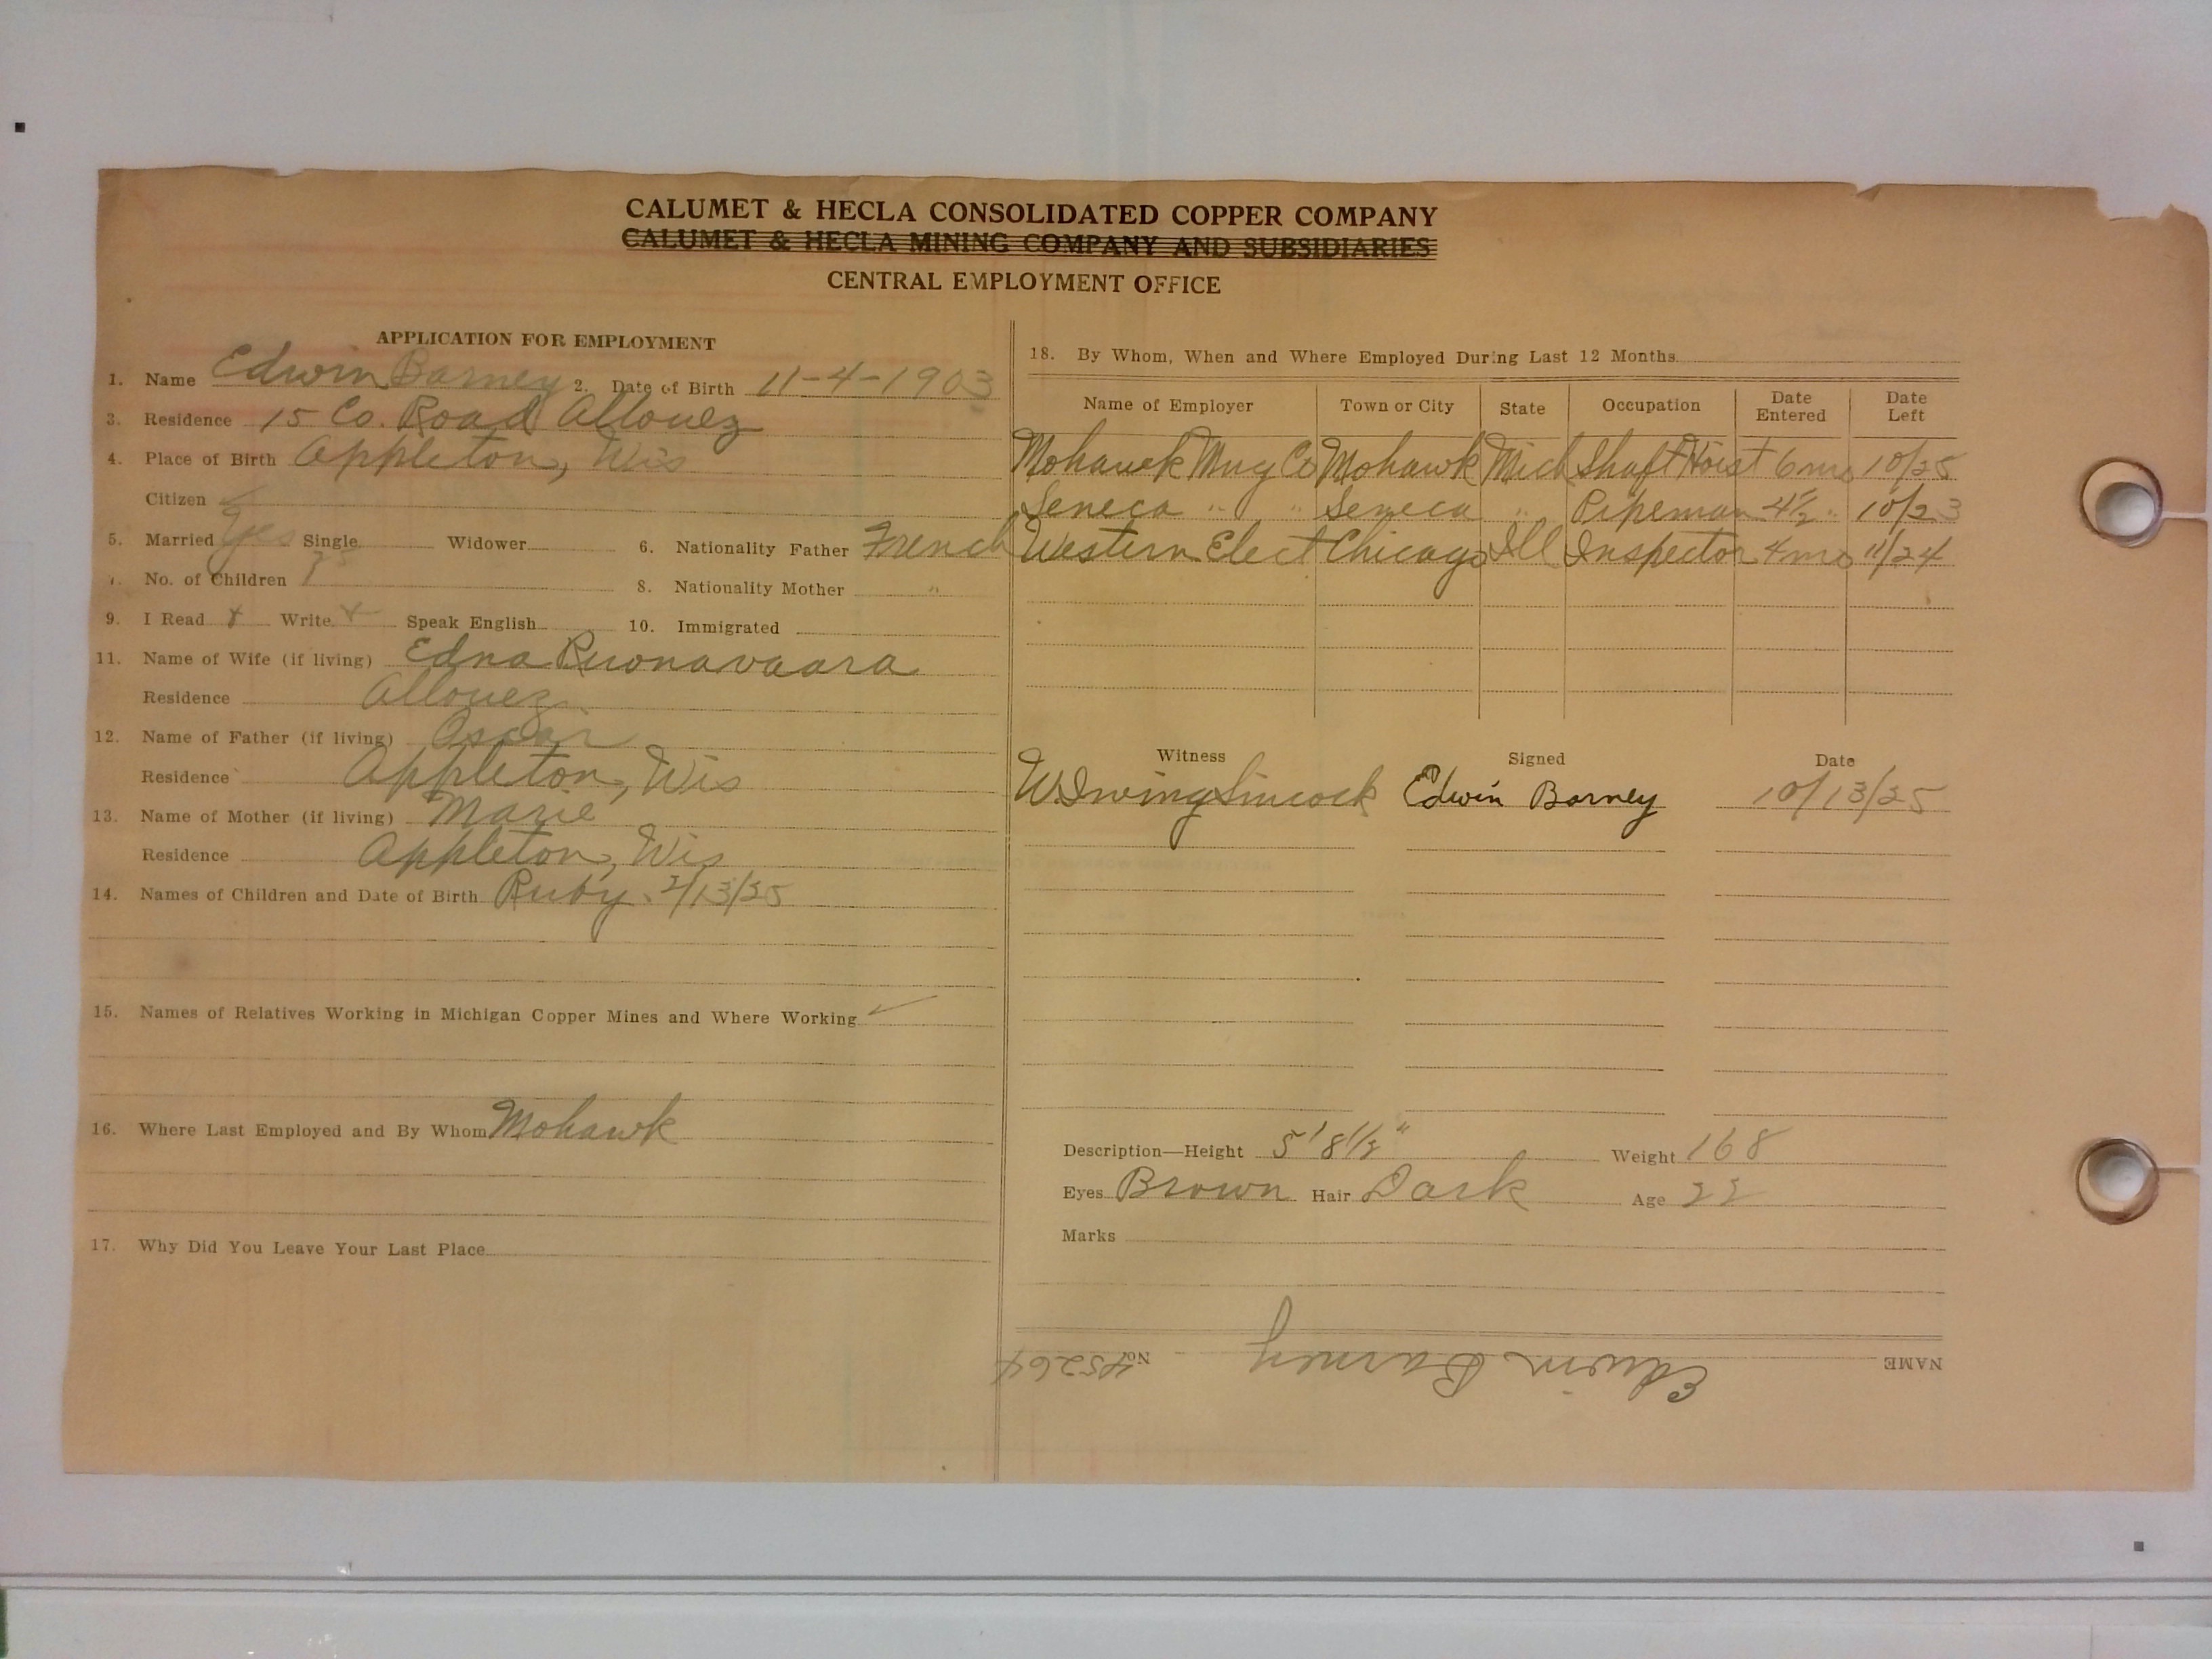 CALUMET & HECLA CONSOLIDATED COPPER COMPANY
CALUMET & HECLA MINING COMPANY AND SUBSIDIARIES
CENTRAL EMPLOYMENT OFFICE
APPLICATION FOR EMPLOYMENT
1. Name Edwin Barney 2. Date of Birth 11-4-1903
3. Residence 15 Co. Road Allouez
4. Place of Birth Appleton, Wis
Citizen ✓
5. Married Yes Single Widower 6. Nationality Father French
7. No. of Children 1 8. Nationality Mother "
9. I Read x Write x Speak English 10. Immigrated
11. Name of Wife (if living) Edna Ruonavaara
Residence Allouez
12. Name of Father (if living) Oscar
Residence Appleton, Wis
13. Name of Mother (if living) Marie
Residence Appleton, Wis
14. Names of Children and Date of Birth Ruby. 2/13/25
15. Names of Relatives Working in Michigan Copper Mines and Where Working ✓
16. Where Last Employed and By Whom Mohawk
17. Why Did You Leave Your Last Place
18. By Whom, When and Where Employed During Last 12 Months
Name of Employer Town or City State Occupation Date Entered Date Left
Mohawk Mng Co Mohawk Mich Shaft Hoist 6 mo 10/25
Seneca " " Seneca " Pipeman 4½ " 10/23
Western Elect Chicago Ill Inspector 4 mo 11/24
Witness Signed Date
W. Irving Sincock Edwin Barney 10/13/25
Description—Height 5' 8½" Weight 168
Eyes Brown Hair Dark Age 22
Marks
NAME Edwin Barney No. 45264